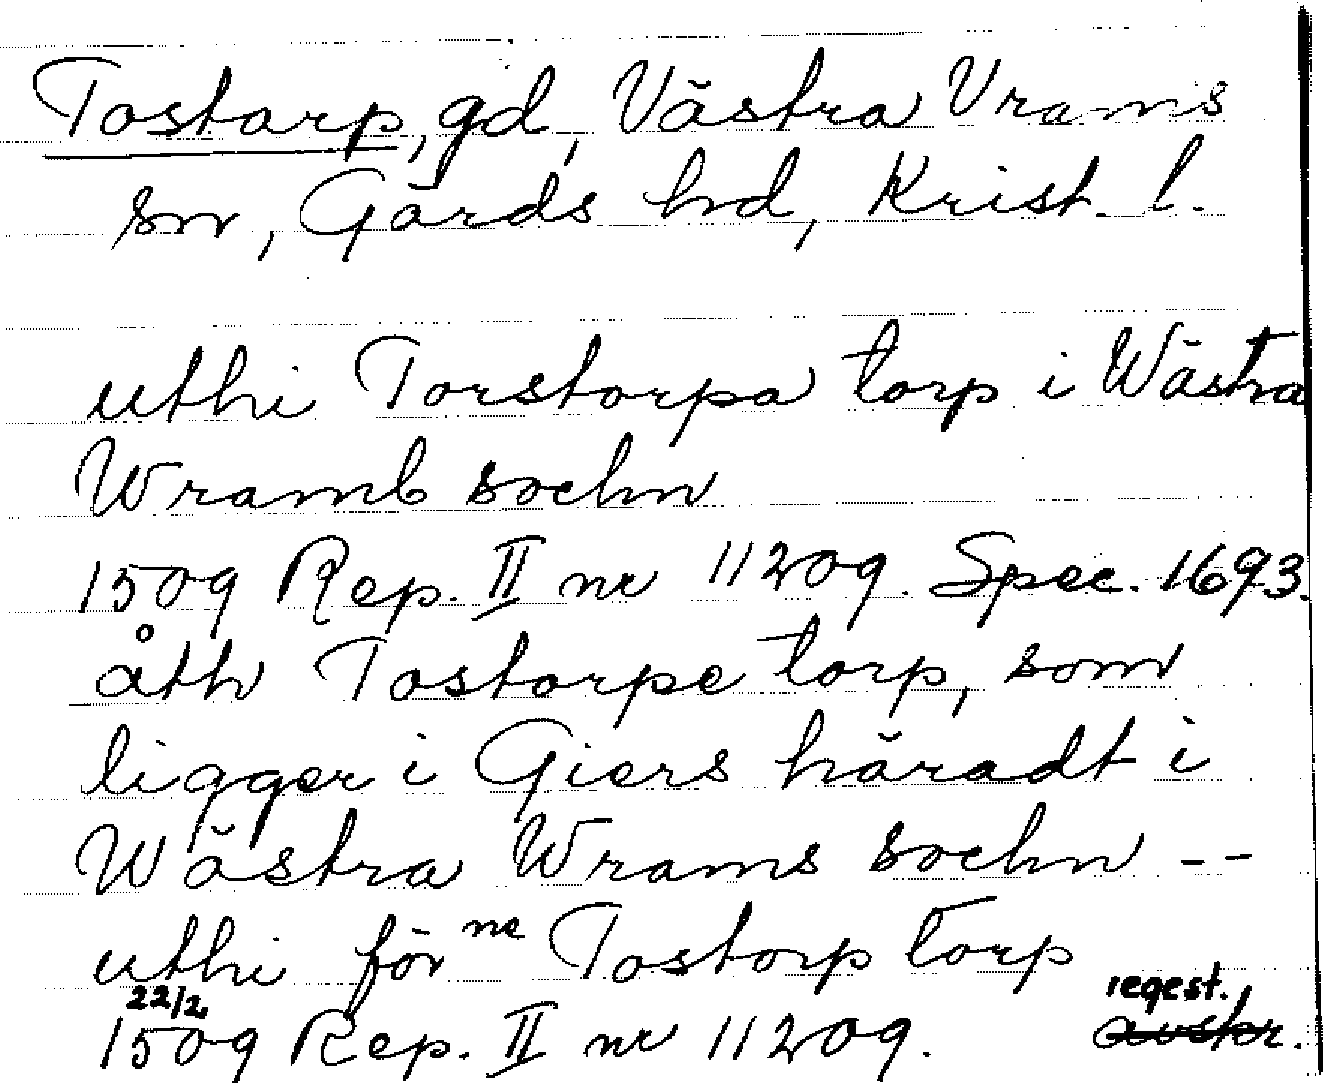 Tostarp, gd, Västra Vrams
sn, Gärds hd, Krist. l.
uthi Torstorpa torp i Wästra
Wramb sochn
1509 Rep. II nr 11209. Spec. 1693.
åth Tostorpe torp, som
ligger i Giers häradt i
Wästra Wrams sochn --
uthi för ne Tostorp torp
22/2 regest.,
1509 Rep. II nr 11209. avskr.